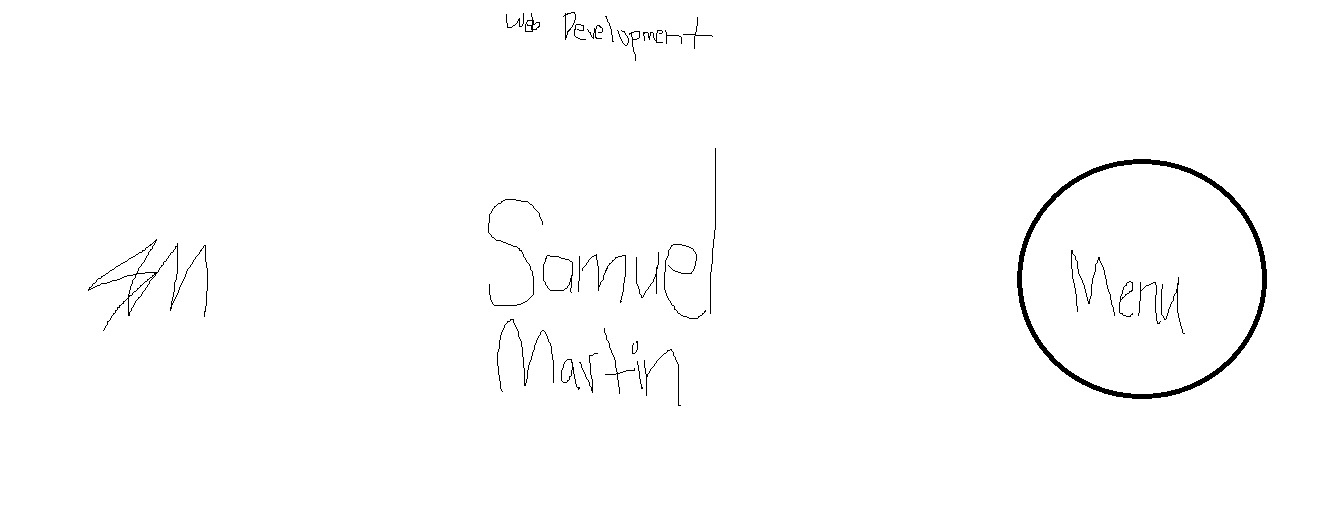 Web Development
Samuel
Martin
Menu